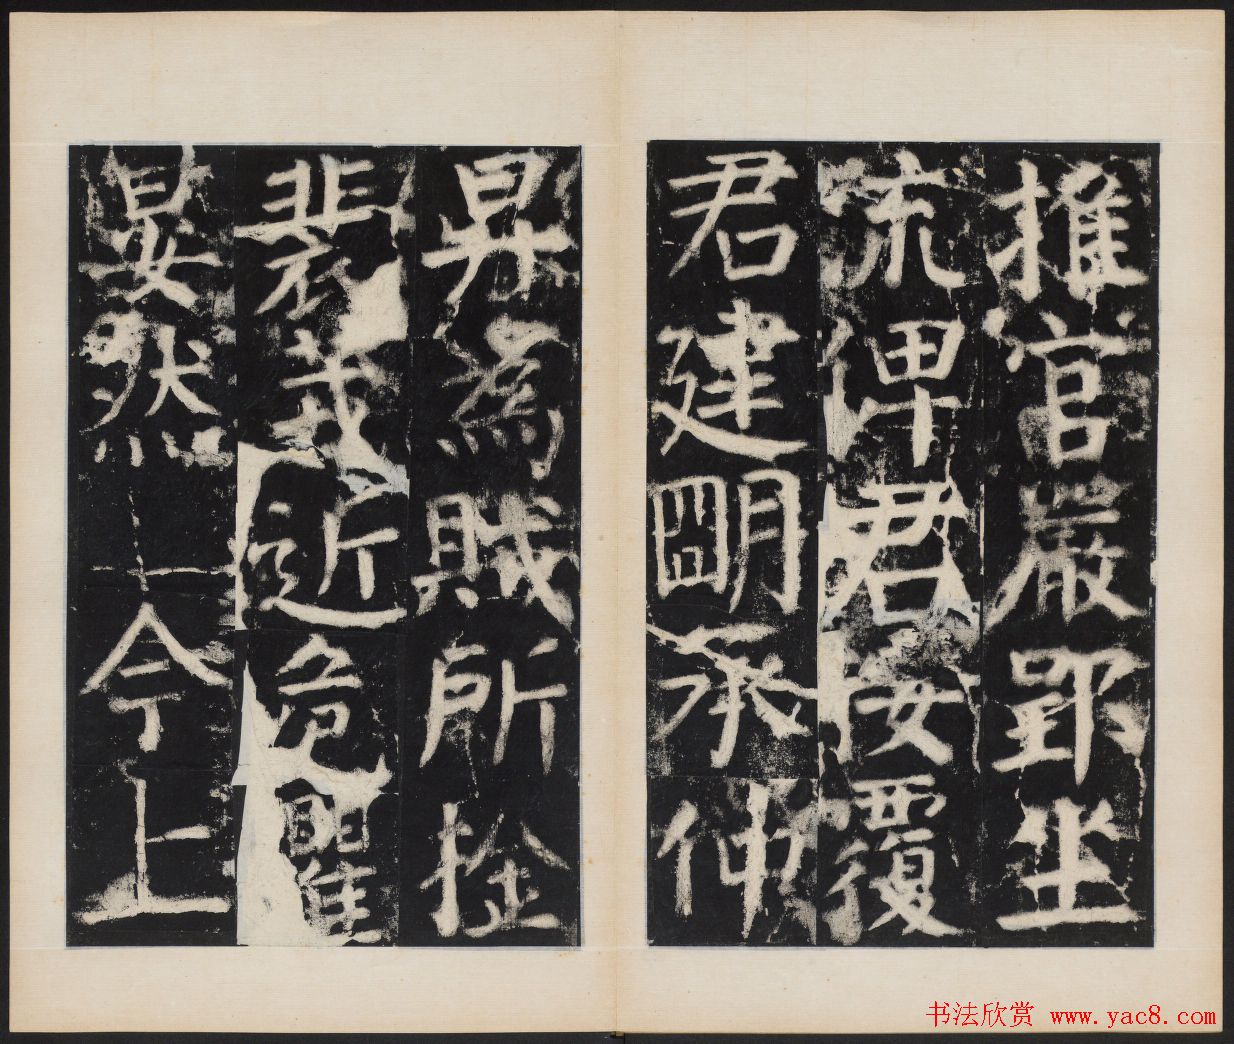 推官嚴郢坐
流俾君按覆
君建朙承仲
昇為賊所捦
裴茙近危懼
晏然今上
书法欣赏 www.yac8.com